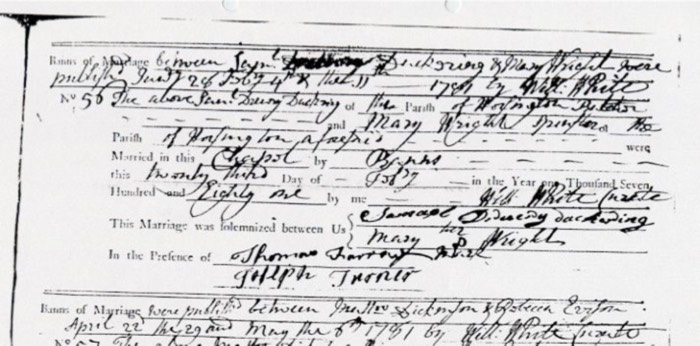 Banns of Marriage between Saml. Duckering & Mary Wright were
published Jany 28 Feby 4th & the 11 1781 by Will. White
No 56 The above Saml. Drewry Duckring of this Parish of Horsington
and Mary Wright Spinster of the
Parish of Horsington aforesaid were
Married in this Chapel by Banns
this twenty third Day of Feby in the Year one Thousand Seven
Hundred and Eighty one by me Will. White Curate
This Marriage was solemnized between Us Samuel duckering
Mary her Wright
In the Presence of Thomas mark
Joseph
Banns of Marriage were published between Dickinson & Rebecca
April 22d the 29 and May the 6th 1781 by Will. White Curate
No 57 The above